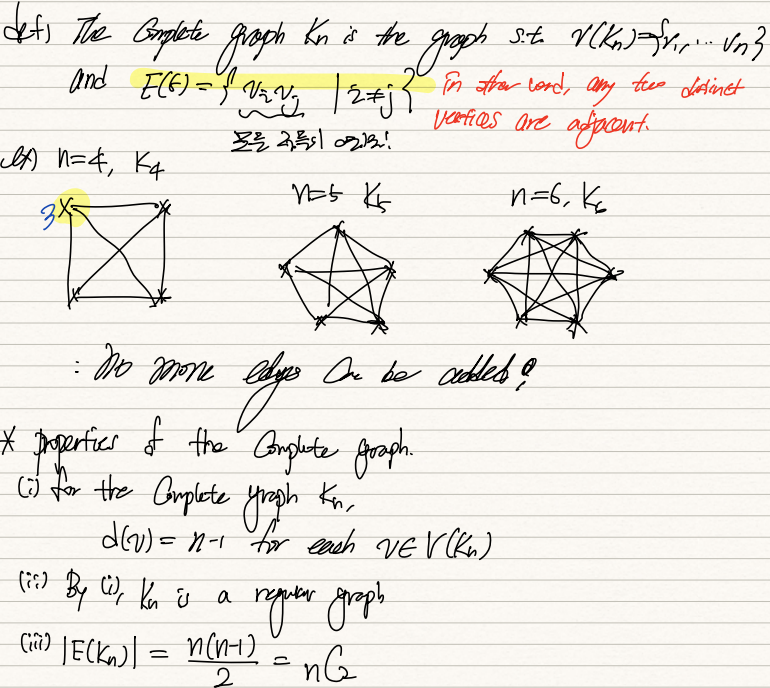 def) The Complete graph Kn is the graph s.t. V(Kn)={v1, ... vn}
and E(G) = { vivj | i≠j } In other word, any two distinct
vertices are adjacent.
모든 즉 연결!
ex) n=4, K4
n=5 K5 n=6, K6
3
: No more edges can be added!
* properties of the Complete graph.
(i) for the Complete graph Kn,
d(v) = n-1 for each v∈V(Kn)
(ii) By (i), Kn is a regular graph
(iii) |E(Kn)| = n(n-1)/2 = nC2